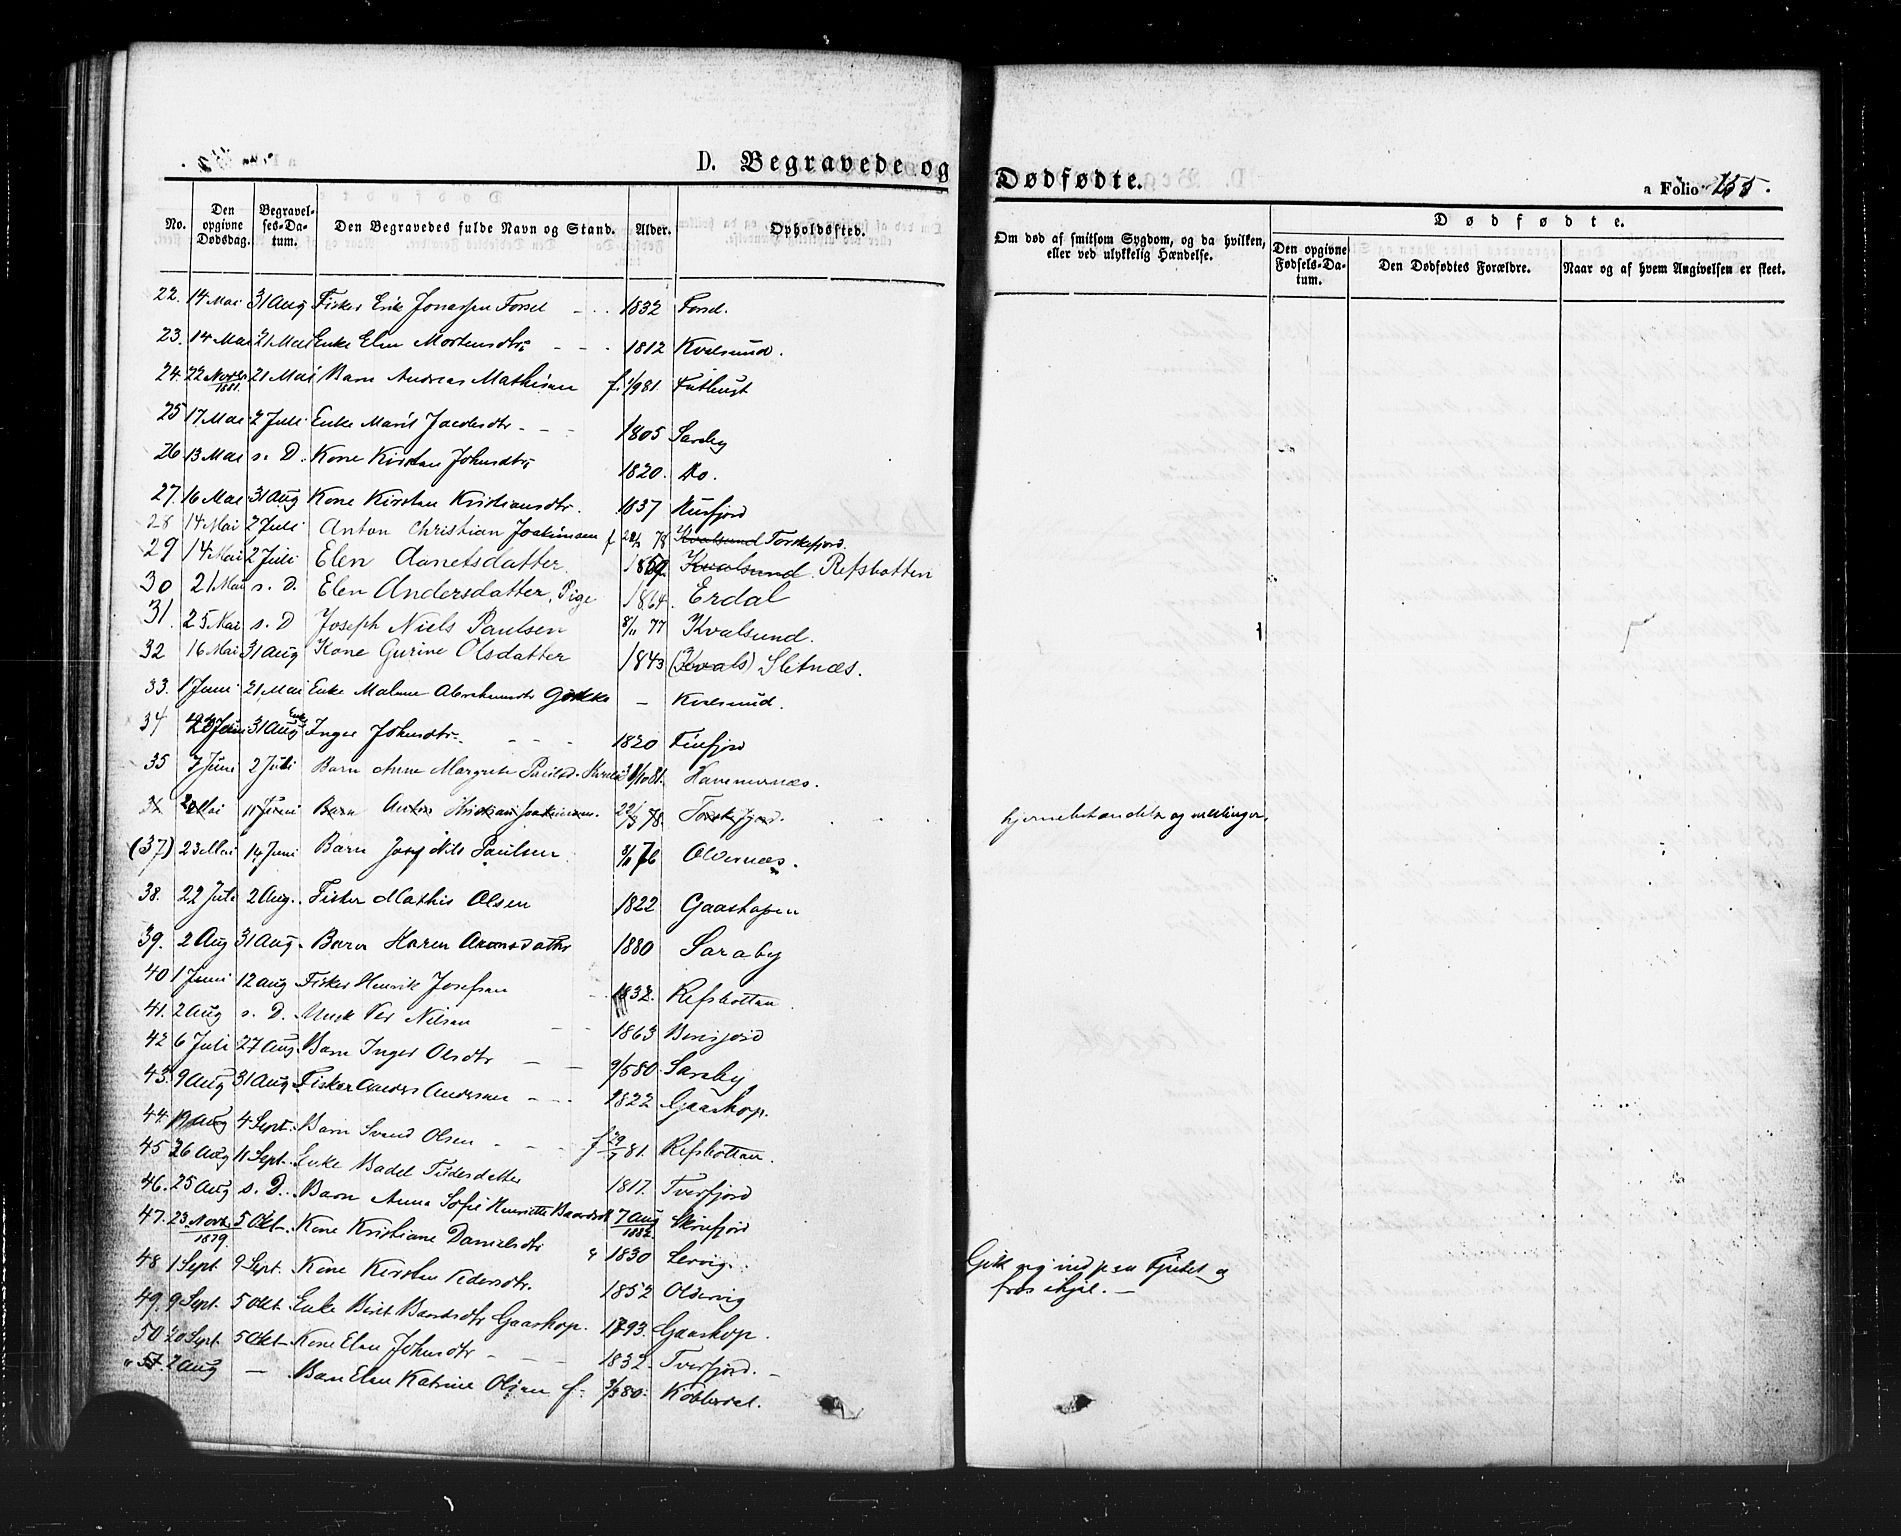 D. Begravede og Dødfødte.
a Folio 155.
No. | Den opgivne Dødsdag. | Begravelses-Datum. | Den Begravedes fulde Navn og Stand. | Alder. | Opholdssted. | Om død af smitsom Sygdom, og da hvilken, eller ved ulykkelig Hændelse. | Dødfødte. | Den opgivne Fødsels-Datum. | Den Dødfødtes Forældre. | Naar og af hvem Angivelsen er skeet.
22. 14 Mai 31 Aug Fisker Erik Jonassen Forsel 1832 Forsel.
23. 14 Mai 21 Mai Enke Elen Mortensdtr 1812 Kvalsund.
24. 22 Novbr 1881. 21 Mai Barn Andreas Mathisen f. 1/9 81.
25 17 Mai 2 Juli Enke Marit Jacobsdtr 1805 Saraby
26. 13 Mai s. D. Kone Kirsten Johnsdtr 1820. Do.
27. 16 Mai 31 Aug Kone Kirsten Kristiansdtr. 1837
28 14 Mai 2 Juli Anton Christian Joakimsen f 78 Kvalsund Torskefjord.
29 14 Mai 2 Juli Elen Aanetsdatter Kvalsund. Refsbotten
30 21 Mai s. D. Elen Andersdatter, Pige 1864. Erdal
31. 25 Mai s. D Joseph Niels Paulsen 8/11 77 Kvalsund.
32 16 Mai 31 Aug Kone Gurine Olsdatter 1843 (Kvals) Sletnæs.
33. 1 Juni 21, Mai Enke Malene Abrahamsdtr – Kvalsund.
34 31 Aug Enke Inger Johnsdtr. 1820
35 7 Juni 2 Juli Barn Anne Margrete 81. Hammernæs.
11 Juni Barn Anton Kristian Joakimsen. 22/3 78. Torskefjord. hjernebetændelse og mæslinger.
(37) 23 Mai 14 Juni Barn Josef Nils Paulsen 8/11 76 Oldernæs.
38. 22 Juli 2 Aug. Fisker Mathis Olsen 1822 Gaashopen
39. 2 Aug 31 Aug. Barn Karen Aronsdatter 1880 Saraby
40 1 Juni 12 Aug Fisker Henrik Josefsen 1832. Refsbotten
41. 2 Aug s. D. Per Nilsen 1863
42 6 Juli 27 Aug. Barn Inger Olsdtr 9/5 80 Saraby
43. 9 Aug 31 Aug. Fisker Anders Andersen 1822 Gaashop.
44. 19 Aug 4 Sept. Barn Svend Olsen f 81. Refsbotten.
45 26 Aug 11 Sept. Enke Badel 1817. Tverfjord
46. 25 Aug s. D. Barn Anna Sofie Henriette 7 Aug 1882
47. 23 Novbr 1879. 5 Okt. Kone Kristiane Danielsdtr 1830 Lervig.
48. 1 Sept. 9 Sept. Kone Kirsten Pedersdtr. 1852 Oldervig Gik sig ind paa Fjeldet og frøs ihjel. –
49. 9 Sept. 5 Okt. Enke Berit Baardsdtr Gaashop. 1793. Gaashop.
50 20 Sept. 5 Okt. Kone Elen Johnsdtr 1832. Tverfjord. –
51. 2 Aug – Barn Elen Katrine Olsen f. 80. Kobberdal.